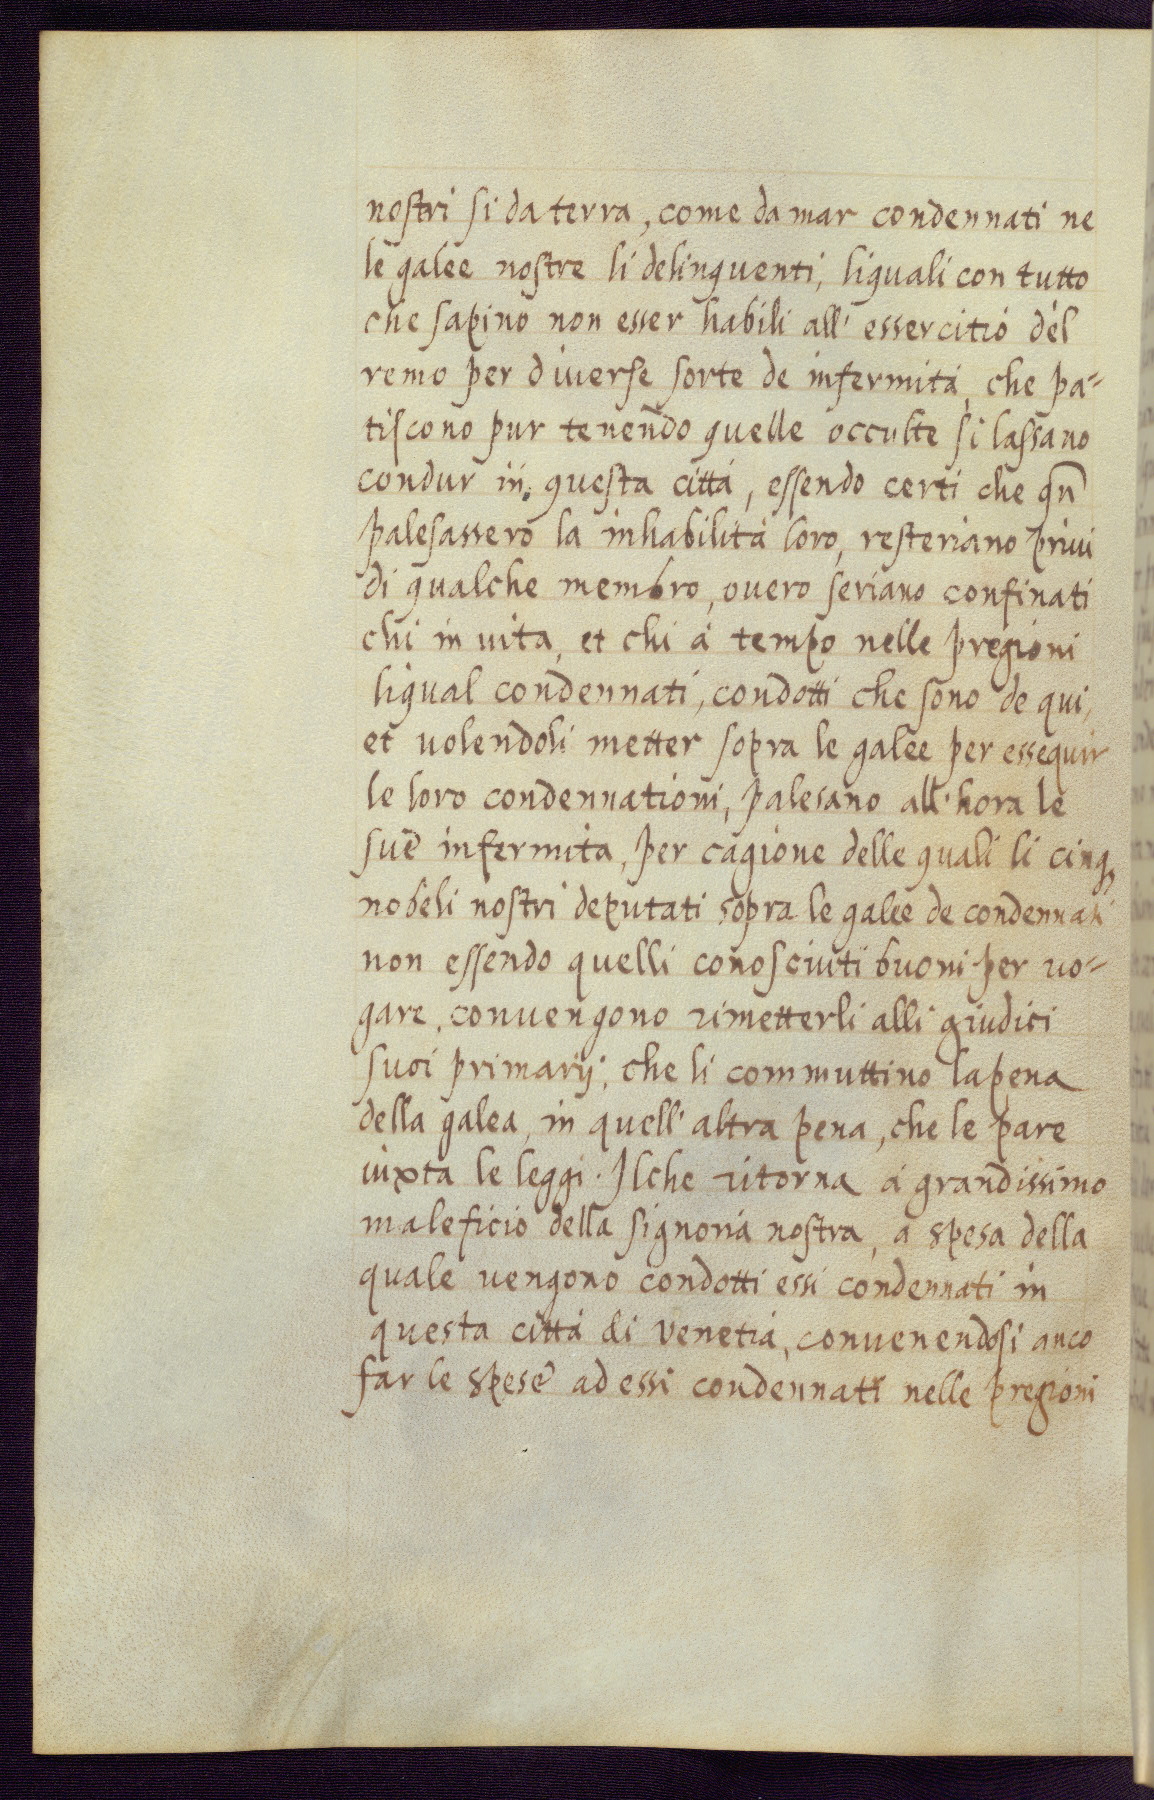 nostri si da terra, come da mar condennati ne
le galee nostre li delinquenti, liquali con tutto
che sapino non esser habili all' essercitio del
remo per diverse sorte de infermità, che pa-
tiscono pur tenendo quelle occulte si lassano
condur in questa città, essendo certi che qn
palesassero la inhabilità loro, resteriano privi
di qualche membro, overo seriano confinati
chi in vita, et chi à tempo nelle pregioni
liqual condennati, condotti che sono de qui,
et volendoli metter sopra le galee per essequir
le loro condennationi, palesano all'hora le
sue infermita, per cagione delle quali li cinq;
nobeli nostri deputati sopra le galee de condennati
non essendo quelli conosciuti buoni per vo-
gare, convengono rimetterli alli giudici
suoi primarij, che li commuttino la pena
della galea, in quell' altra pena, che le pare
iuxta le leggi. Ilche ritorna à grandissimo
maleficio della signoria nostra, a spesa della
quale vengono condotti essi condennati in
questa città di Venetia, convenendosi anco
far le spese ad essi condennati nelle pregioni